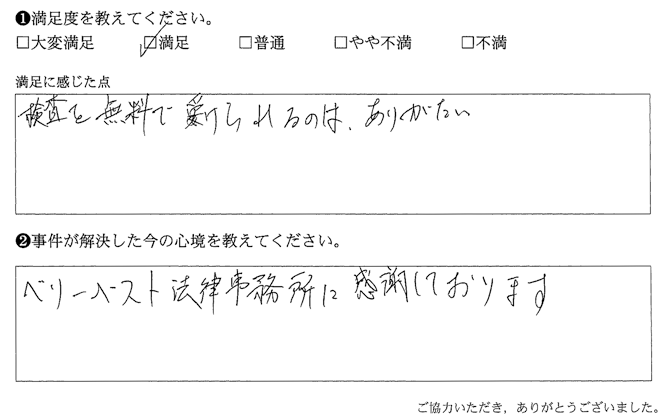 ❶満足度を教えてください。
□大変満足 ☑満足 □普通 □やや不満 □不満
満足に感じた点
検査を無料で受けられるのは、ありがたい
❷事件が解決した今の心境を教えてください。
ベリーベスト法律事務所に感謝しております
ご協力いただき，ありがとうございました。